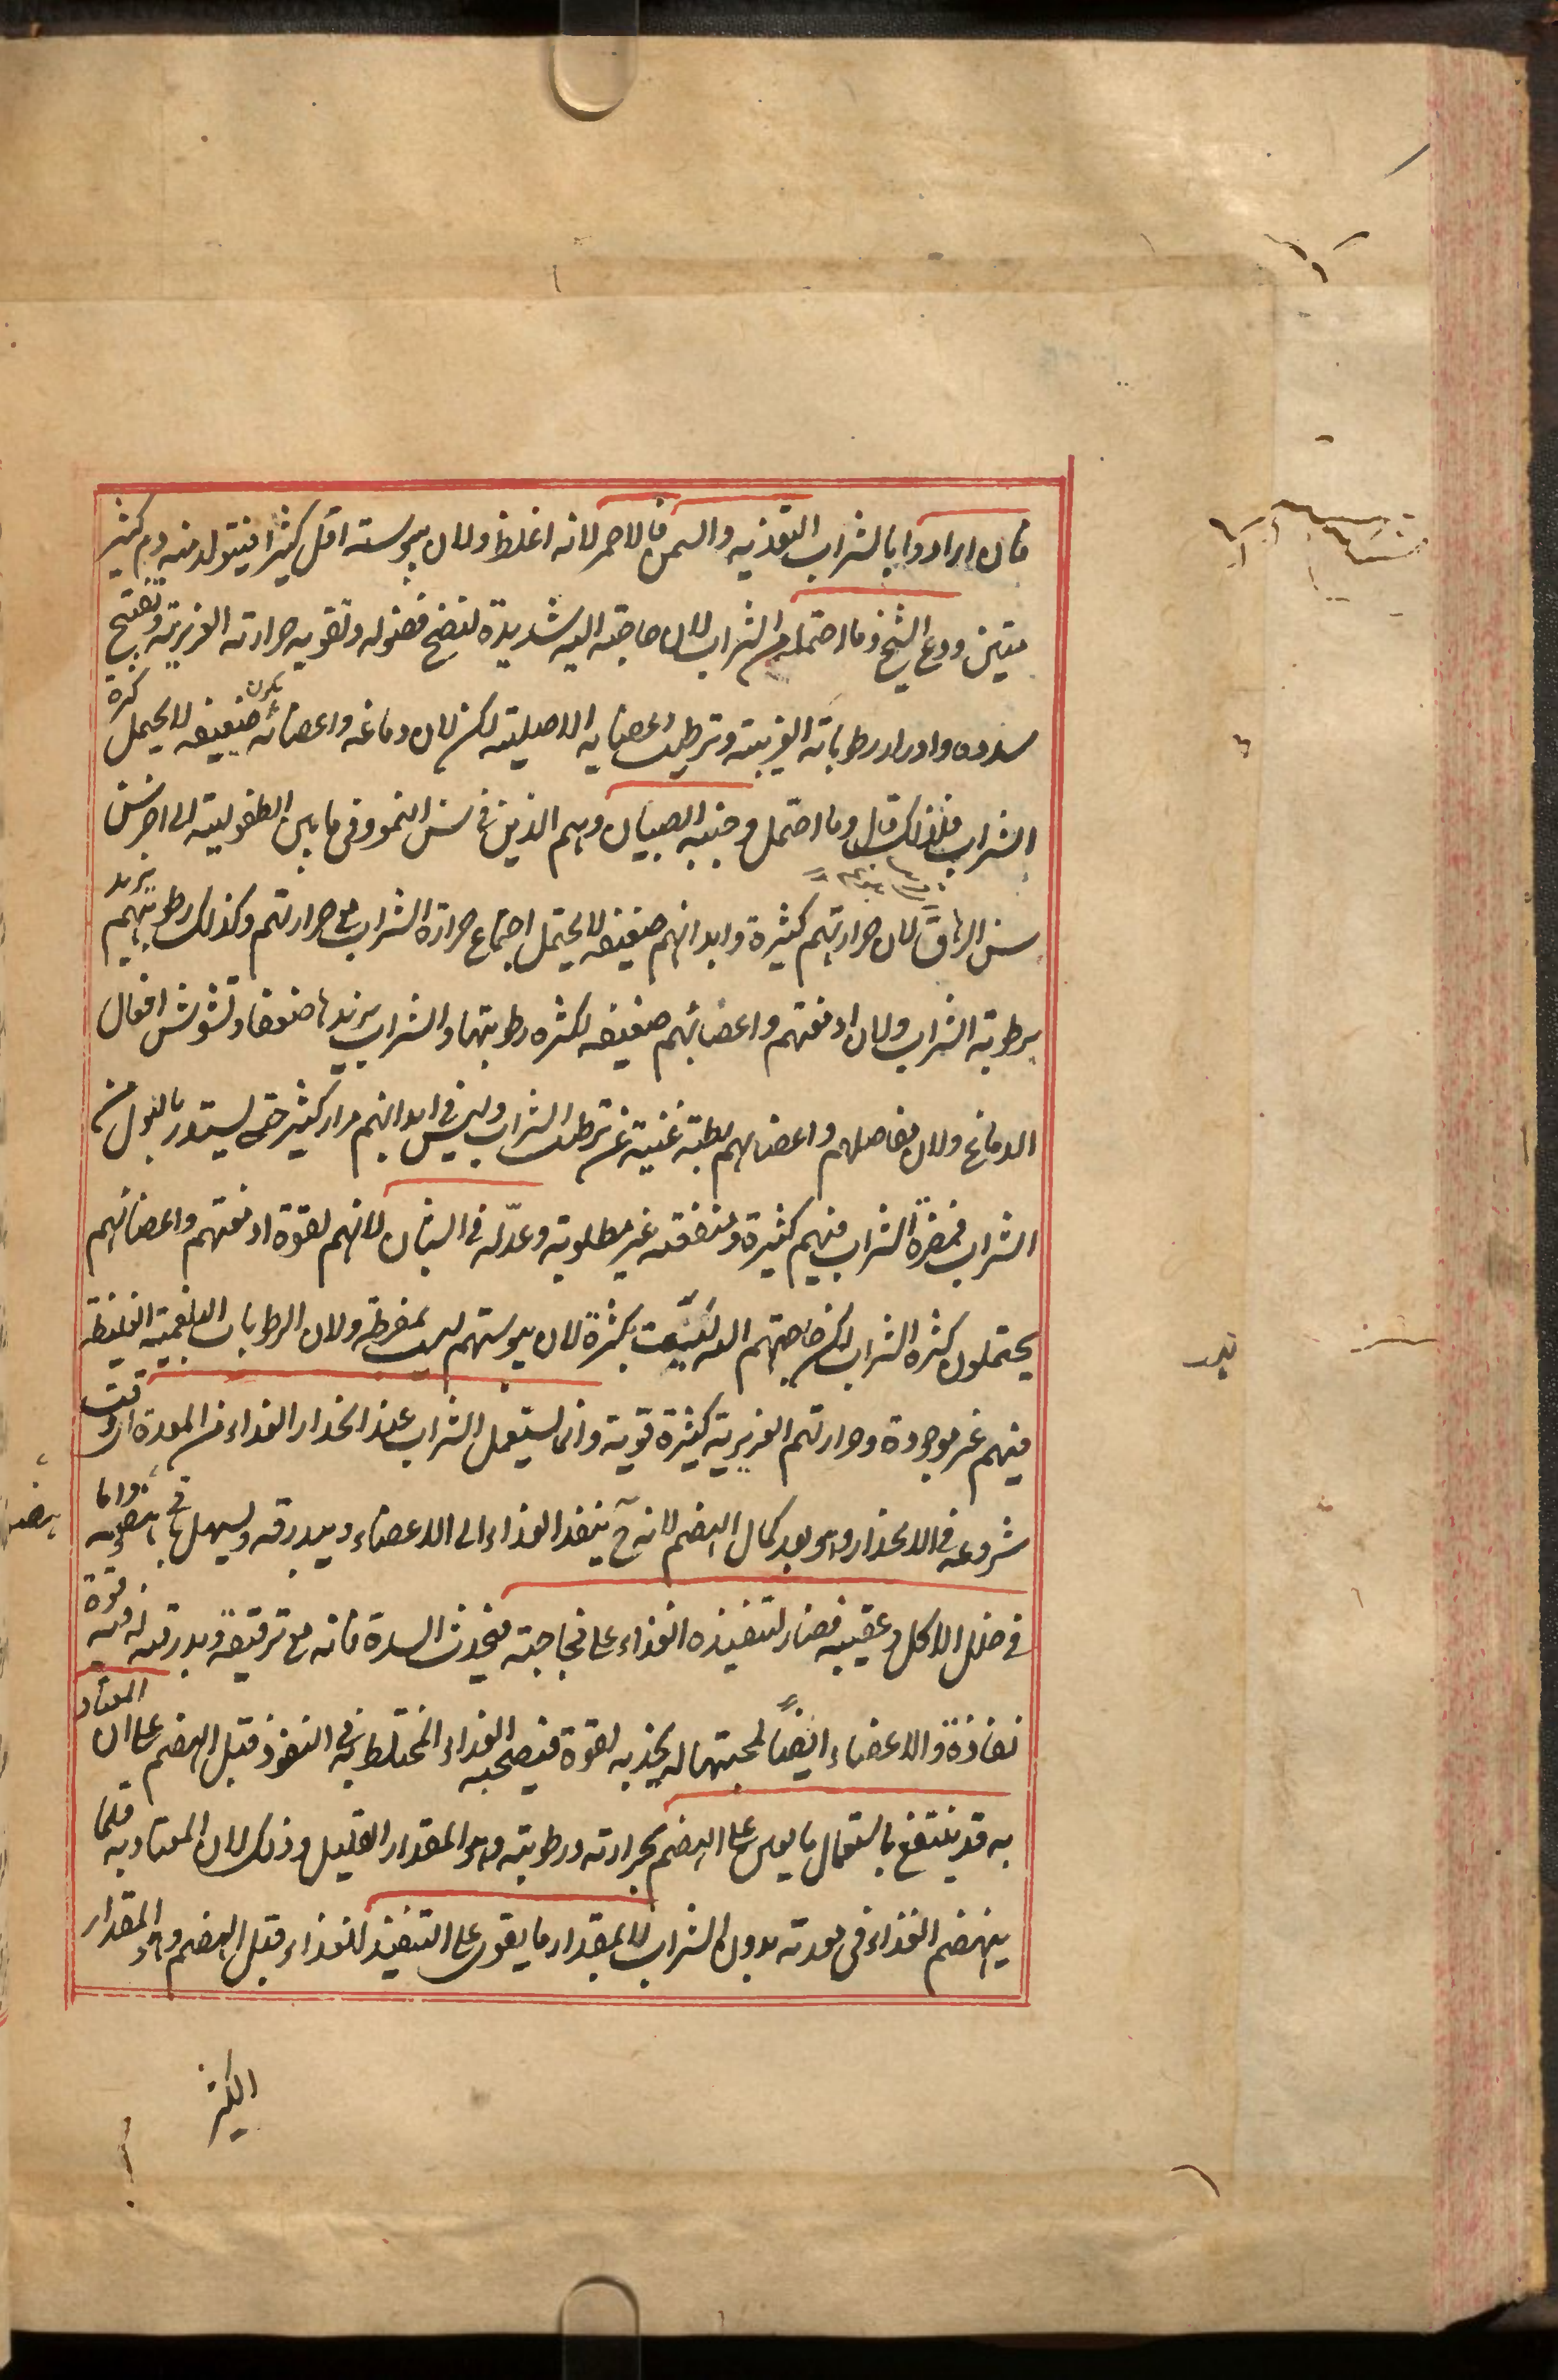 فان ارادوا بالشراب التغذيه والسمن فالاحمر لانه اغلظ ولان يبوسته اقل كثيرا فيتولد منه دم كثير
متين ودع الشيخ وما احتمله من الشراب لان حاجته اليه شديدة لنضج فضوله وتقويه حرارته الغريزيته وتفتيح
سدده وادرار رطوباته الغريبته وترطيب اعضايه الاصليته لكن لان دماغه واعضائه تكون ضعيفه لا يحمل كثرة
الشراب فلذلك قال وما احتمل وجنبه الصبيان وهم الذين فى سن النمو وفى ما بين الطفوليته الى اخر سن
سن الرهاق لان حرارتهم كثيرة وابدانهم ضعيفه لا يحتمل اجتماع حرارة الشراب مع حرارتهم وكذلك رطوبتهم تزيد
برطوبته الشراب ولان ادمغتهم واعضائهم ضعيفه لكثره رطوبتها والشراب يزيدها ضعفا وتشوش افعال
الدماغ ولان مفاصلهم واعضالهم رطبته غنية عن ترطيب الشراب وليس فى ابدانهم مرار كثير حتى يستدر بالبول من
الشراب فمضرة الشراب فيهم كثيرة ومنفعته غير مطلوبته وعدّله فى الشبان لانهم لقوة ادمغتهم واعضائهم
يحتملون كثره الشراب لكن حاجتهم اليه ليست بكثرة لان يبوستهم ليست بمفرطه ولان الرطوبات البلغميته الغليظة
فيهم غير موجودة وحرارتهم الغريزيته كثيرة قوية وانما يستعمل الشراب عند انحدار الغذاء من المعدة اى وقت
شروعه فى الانحدار وهو بعد كمال الهضم لانه ح ينفذ الغذاء الى الاعضاء ويبدرقه ويسهل واما
فى خلل الاكل وعقيبه فضار لتنفيذه الغذاء على فجاجته فيحدث السدة فانه مع ترقيقه وبدرقته له فيه قوة
نفاذة والاعضاء ايضا لمحبتها له يجذبه لقوة فيصحبه الغذاء المختلط به فى النفوذ قبل الهضم على ان المعتاد
به قد ينتفع باستعمال ما يعين على الهضم بحرارته ورطوبته وهو المقدار القليل وذلك لان المعتاد به قلما
ينهضم الغذاء فى معدته بدون الشراب لا بمقدار ما يقوى على التنفيذ للغذاء قبل الهضم وهو المقدار
الكثير